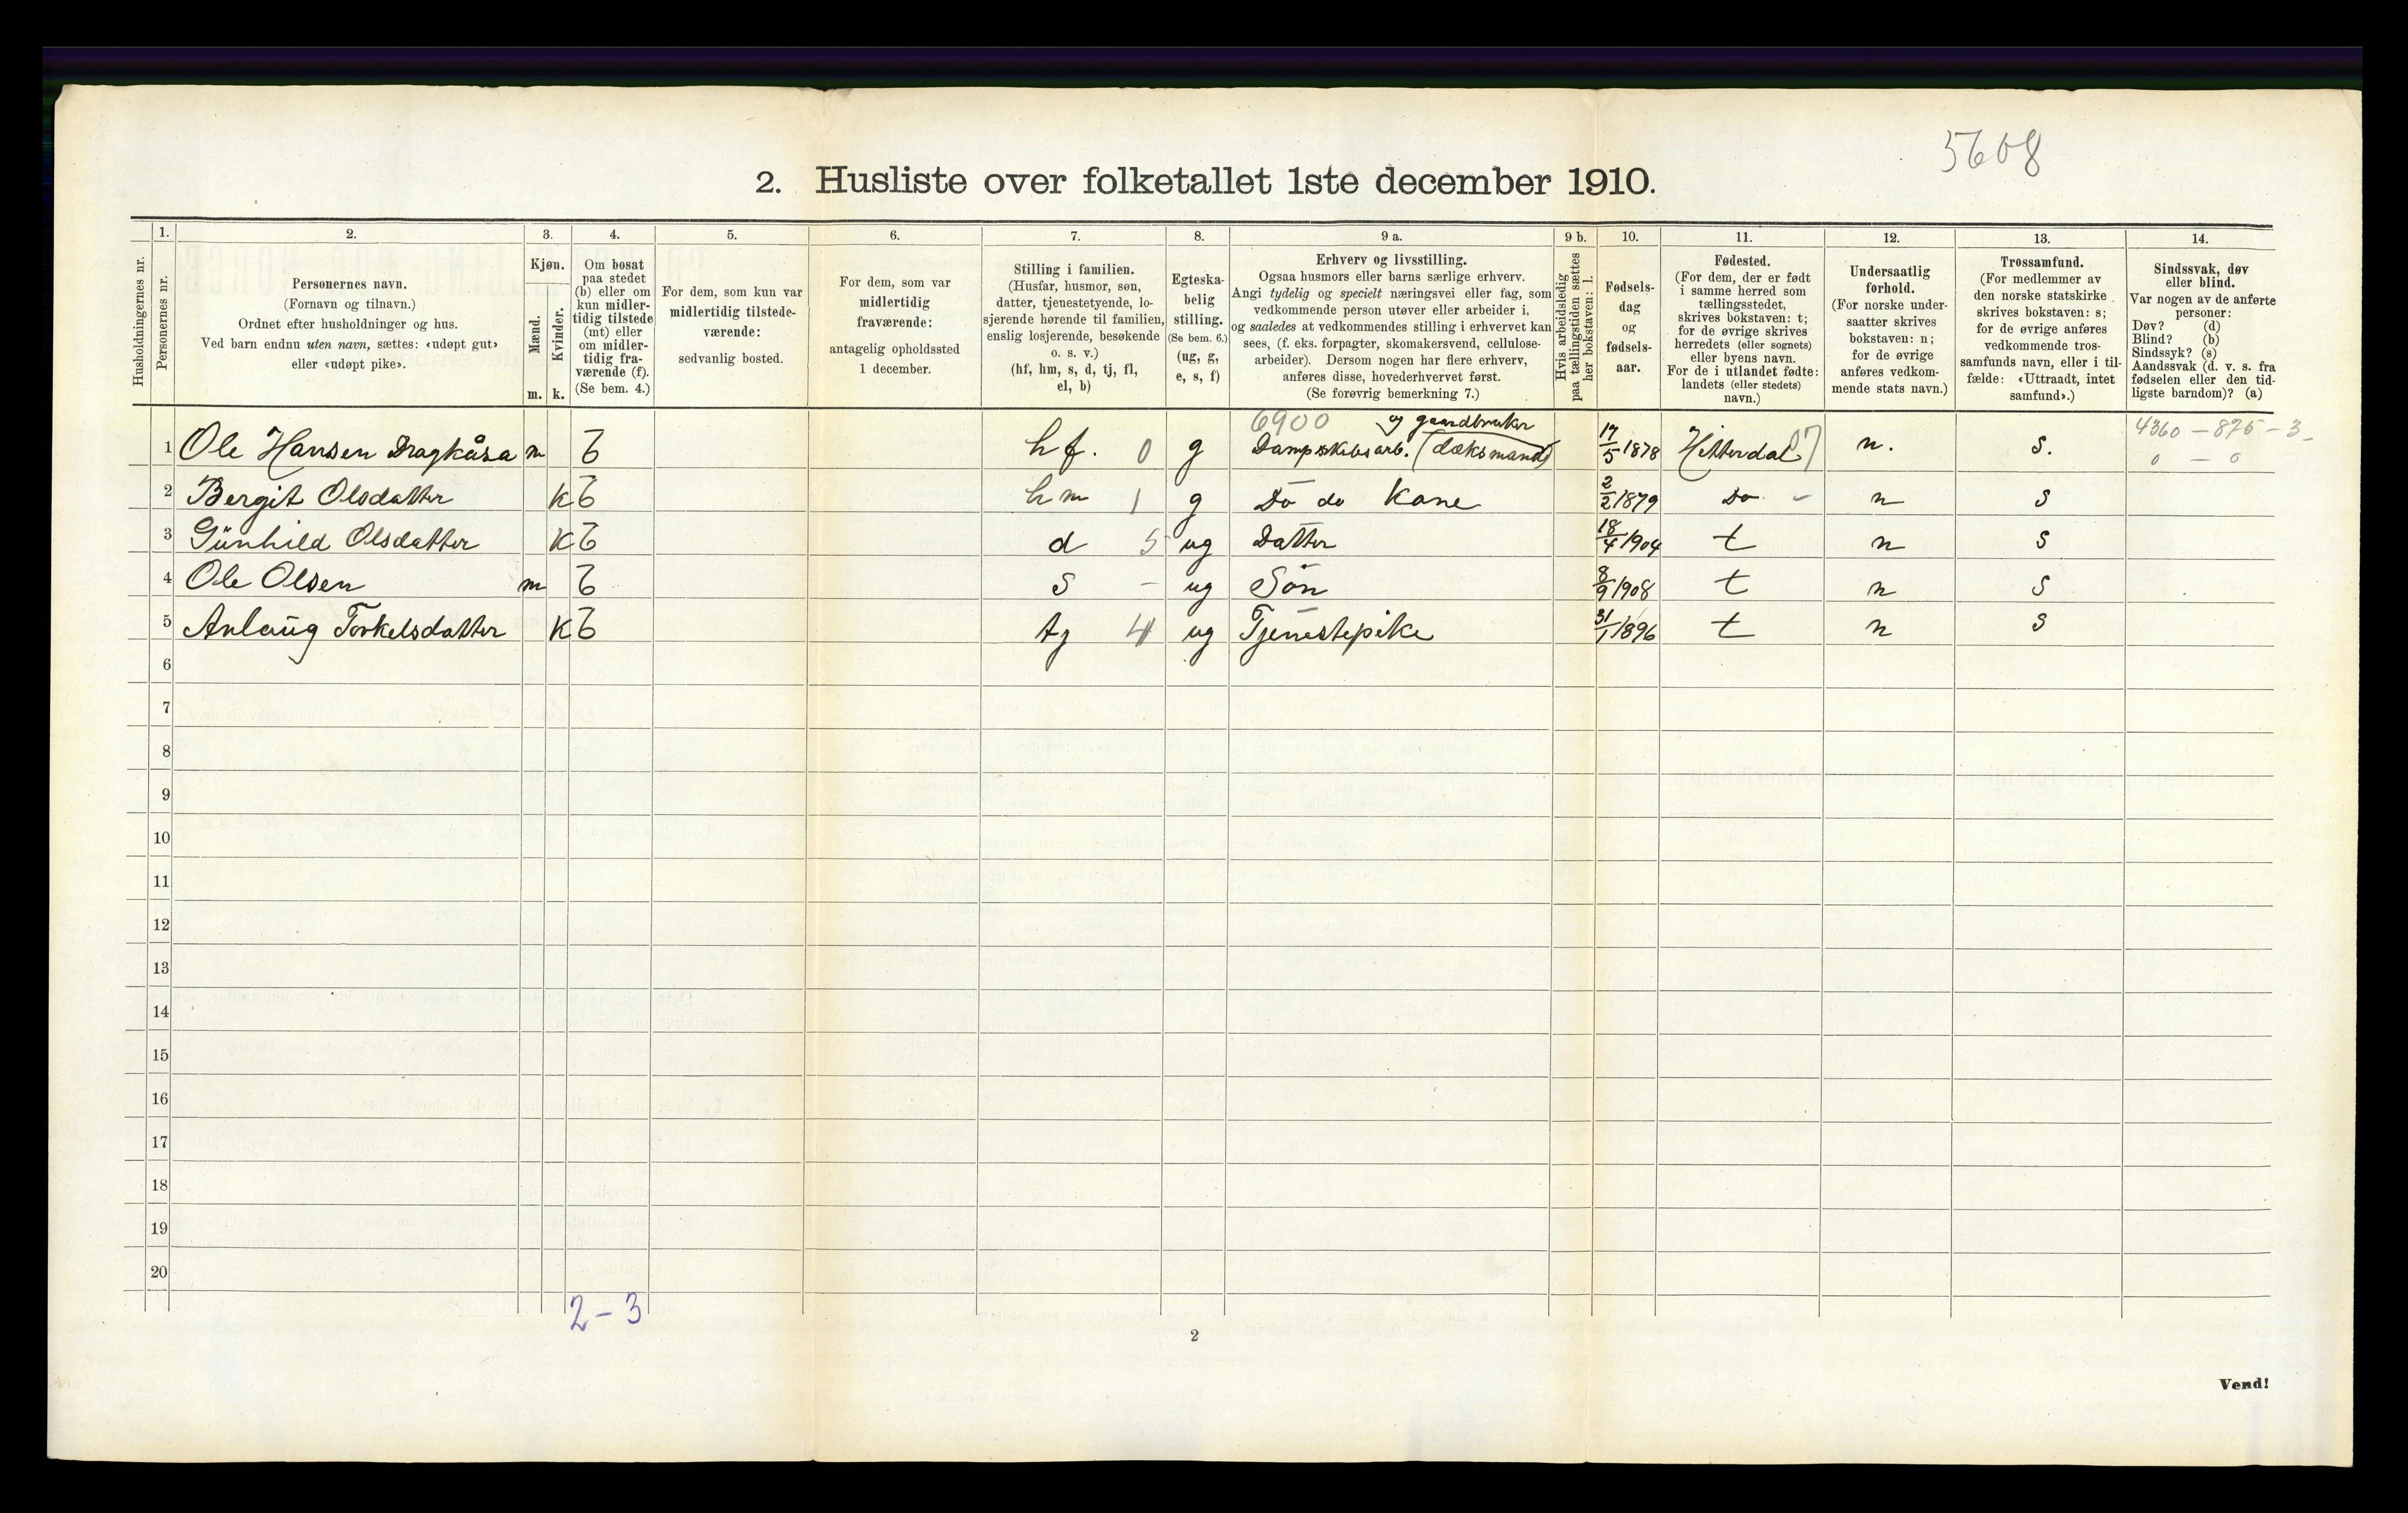 5608
2. Husliste over folketallet 1ste december 1910.
Husholdningernes nr.
1.
Personernes nr.
2.
Personernes navn.
(Fornavn og tilnavn.)
Ordnet efter husholdninger og hus.
Ved barn endnu uten navn, sættes: «udøpt gut»
eller «udøpt pike».
3.
Kjøn.
Mænd.
Kvinder.
m. k.
4.
Om bosat
paa stedet
(b) eller om
kun midler-
tidig tilstede
(mt) eller
om midler-
tidig fra-
værende (f).
(Se bem. 4.)
5.
For dem, som kun var
midlertidig tilstede-
værende:
sedvanlig bosted.
6.
For dem, som var
midlertidig
fraværende:
antagelig opholdssted
1 december.
7.
Stilling i familien.
(Husfar, husmor, søn,
datter, tjenestetyende, lo-
sjerende hørende til familien,
enslig losjerende, besøkende
o. s. v.)
(hf, hm, s, d, tj, fl,
el, b)
8.
Egteska-
belig
stilling.
(Se bem. 6.)
(ug, g,
e, s, f)
9 a.
Erhverv og livsstilling.
Ogsaa husmors eller barns særlige erhverv.
Angi tydelig og specielt næringsvei eller fag, som
vedkommende person utøver eller arbeider i,
og saaledes at vedkommendes stilling i erhvervet kan
sees, (f. eks. forpagter, skomakersvend, cellulose-
arbeider). Dersom nogen har flere erhverv,
anføres disse, hovederhvervet først.
(Se forøvrig bemerkning 7.)
9 b.
Hvis arbeidsledig
paa tællingstiden sættes
her bokstaven: l.
10.
Fødsels-
dag
og
fødsels-
aar.
11.
Fødested.
(For dem, der er født
i samme herred som
tællingsstedet,
skrives bokstaven: t;
for de øvrige skrives
herredets (eller sognets)
eller byens navn.
For de i utlandet fødte:
landets (eller stedets)
navn.)
12.
Undersaatlig
forhold.
(For norske under-
saatter skrives
bokstaven: n;
for de øvrige
anføres vedkom-
mende stats navn.)
13.
Trossamfund.
(For medlemmer av
den norske statskirke
skrives bokstaven: s;
for de øvrige anføres
vedkommende tros-
samfunds navn, eller i til-
fælde: «Uttraadt, intet
samfund».)
14.
Sindssvak, døv
eller blind.
Var nogen av de anførte
personer:
Døv? (d)
Blind? (b)
Sindssyk? (s)
Aandssvak (d. v. s. fra
fødselen eller den tid-
ligste barndom)? (a)
6900 og gaardbruker 4360 - 875 - 3
1 Ole Hansen Dragkåsa m b hf. 0 g Dampskibsarb. (dæksmand) 17/5 1878 Hitterdal 07 n. s. 0 - 0
2 Bergit Olsdatter k b hm 1 g Do do Kone 2/2 1879 Do - n s
3 Gunhild Olsdatter k b d 5 ug Datter 18/4 1904 t n s
4 Ole Olsen m b s - ug Søn 8/9 1908 t n s
5 Anlaug Torkelsdatter k b tj 4 ug Tjenestepike 31/1 1896 t n s
6
7
8
9
10
11
12
13
14
15
16
17
18
19
20
2 - 3
2
Vend!